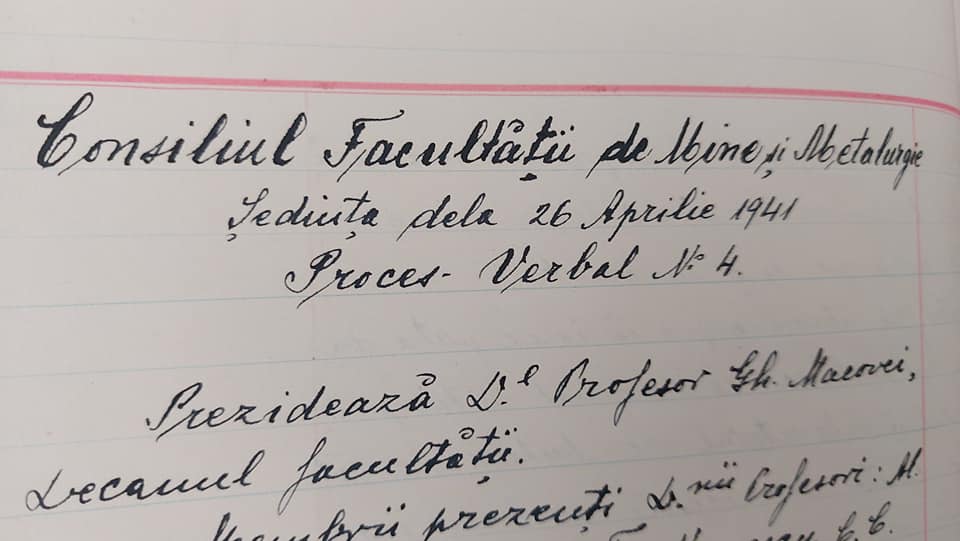 Consiliul Facultății de Mine și Metalurgie
Ședința dela 26 Aprilie 1941
Proces-Verbal No 4.
Prezidează D.l Profesor Gh. Macovei,
Decanul facultății.
Membrii prezenți D.nii Profesori: M.